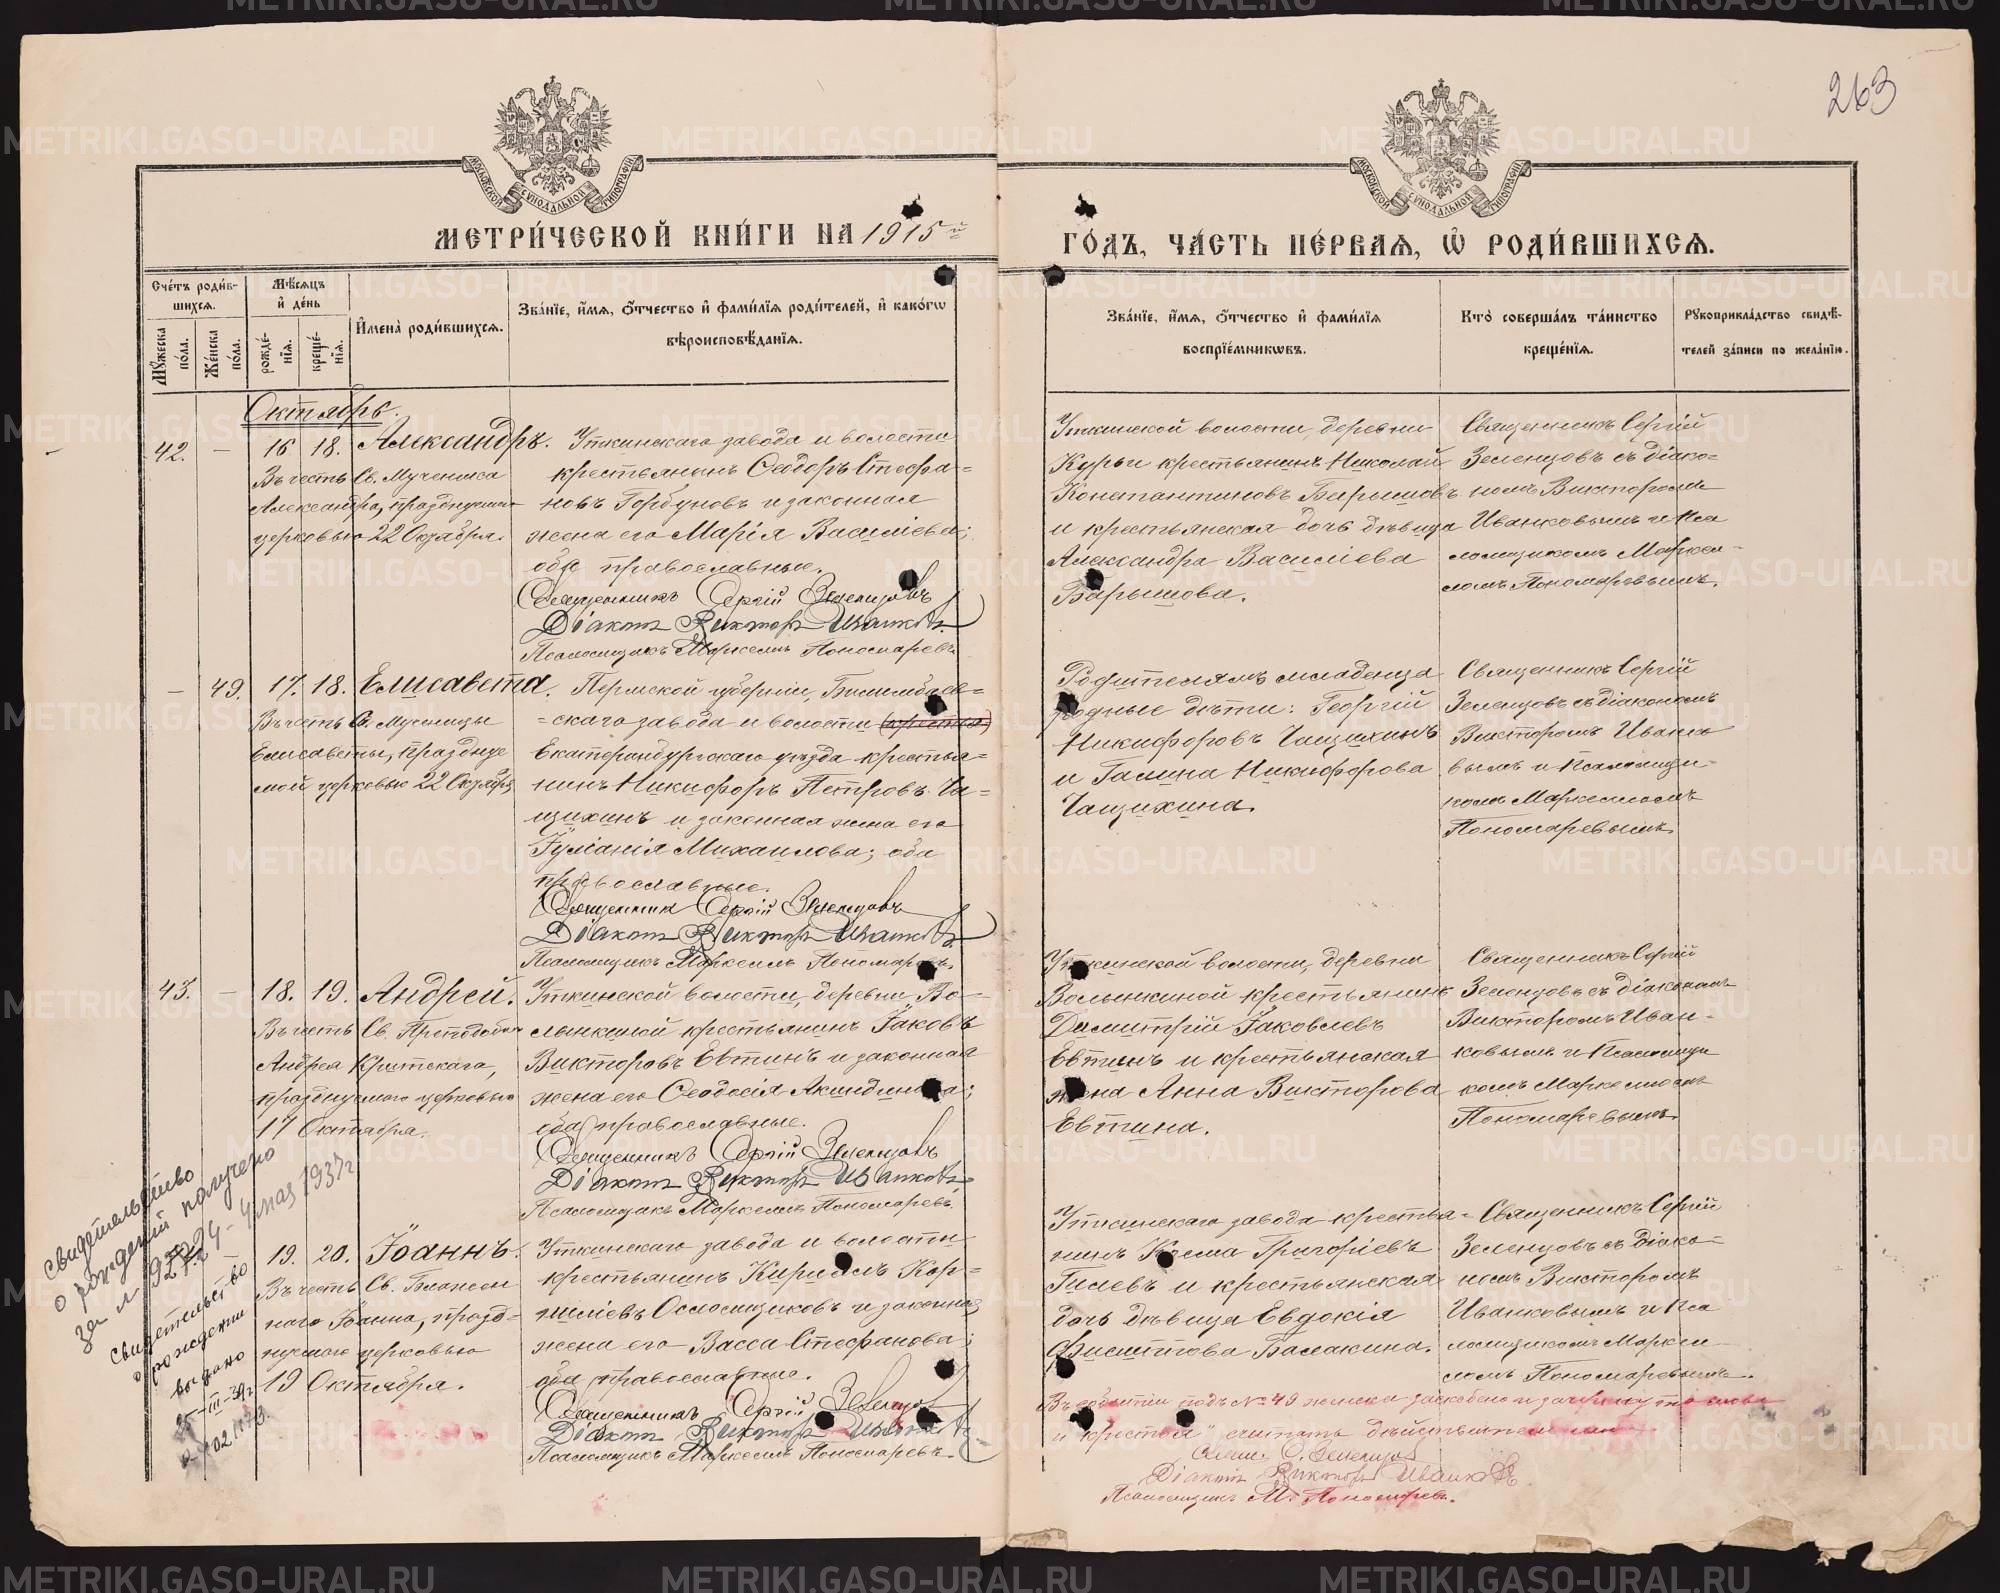 263
МОСКОВСКОЙ СѴНОДАЛЬНОЙ ТИПОГРАФІИ
МОСКОВСКОЙ СѴНОДАЛЬНОЙ ТИПОГРАФІИ
МЕТРИ́ЧЕСКОЙ КНИ́ГИ НА 1915й
ГО́ДЪ, ЧА́СТЬ ПЕ́РВАѦ, Ѡ҆ РОДИ́ВШИХСѦ.
Сче́тъ роди́в-
шихсѧ.
Мꙋ́жеска по́ла.
Же́нска по́ла.
Мѣ́сѧцъ
и҆ де́нь
рожде́-
нїѧ.
креще́-
нїѧ.
И҆мена̀ роди́вшихсѧ.
Зва́нїе, и҆́мѧ, ѻ҆́тчество и҆ фами́лїѧ роди́телей, и҆ како́гѡ
вѣроисповѣ́данїѧ.
Зва́нїе, и҆́мѧ, ѻ҆́тчество и҆ фами́лїѧ
воспрїе́мникѡвъ.
Кто̀ соверша́лъ та́инство
креще́нїѧ.
Рꙋкоприкла́дство свидѣ́-
телей за́писи по жела́нїю.
Октябрь.
42. - 16 18. Александръ.
Въ честь Св. Мученика
Александра, празднуемаго
церковью 22 Октября.
Уткинскаго завода и волости
крестьянинъ Ѳеодоръ Стефа-
новъ Горбуновъ и законная
жена его Марія Василіева;
оба православные.
Священникъ Сергій Зеленцовъ
Діаконъ Викторъ Иванковъ
Псаломщикъ Маркеллъ Пономаревъ.
Уткинской волости, деревни
Курьи крестьянинъ Николай
Константиновъ Барышовъ
и крестьянская дочь дѣвица
Александра Василіева
Барышова.
Священникъ Сергій
Зеленцовъ съ діако-
номъ Викторомъ
Иванковымъ и пса
ломщикомъ Маркел-
ломъ Пономаревымъ.
- 49. 17. 18. Елисавета.
Въ честь Св. Мученицы
Елисаветы, праздные
мой церковью 22 Октября
Пермской губерніи, Билимбаев-
=скаго завода и волости (крестья)
Екатеринбургскаго уѣзда крестья=
нинъ Никифоръ Петровъ Ча-
щихинъ и законная жена его
Іуліанія Михаилова; оба
православные.
Священникъ Сергій Зеленцовъ
Діаконъ Викторъ Иванковъ
Псаломщикъ Маркеллъ Пономаревъ.
Родителямъ младенца
родные дѣти: Георгій
Никифоровъ Чащихинъ
и Галина Никифорова
Чащихина.
Священникъ Сергій
Зеленцовъ съ діакономъ
Викторомъ Иванко
вымъ и псаломщи-
комъ Маркелломъ
Пономаревымъ.
43. - 18. 19. Андрей.
Въ честь Св. Преподобн
Андрея Критскаго,
празднуемаго церковью
17 Октября.
Уткинской волости, деревни Во-
лынкиной крестьянинъ Іаковъ
Викторовъ Евтинъ и законная
жена его Ѳеодосія Акиндинова;
оба православные.
Священникъ Сергій Зеленцовъ
Діаконъ Викторъ Иванковъ
Псаломщикъ Маркеллъ Пономаревъ.
Уткинской волости, деревни
Волынкиной крестьянинъ
Димитрій Іаковлевъ
Евтинъ и крестьянская
жена Анна Викторова
Евтина.
Священникъ Сергій
Зеленцовъ съ діакономъ
Викторомъ Иван-
ковымъ и псаломщи
комъ Маркелломъ
Пономаревымъ.
19. 20. Іоаннъ.
Въ честь Св. Блажен
наго Іоанна, празд-
нуемаго церковью
19 Октября.
Уткинскаго завода и волости
крестьянинъ Кириллъ Кор-
ниліевъ Осломщиковъ и законная
жена его Васса Стефанова;
оба православные.
Священникъ Сергій Зеленцовъ
Діаконъ Викторъ Иванковъ
Псаломщикъ Маркеллъ Пономаревъ.
Уткинскаго завода крестья=
нинъ Козма Григоріевъ
Гилевъ и крестьянская
дочь дѣвица Евдокія
Филиппова Балакина.
Священникъ Сергій
Зеленцовъ съ діако-
номъ Викторомъ
Иванковымъ и пса
ломщикомъ Маркел-
ломъ Пономаревымъ.
свидетельство
о рождении получено
за № 4 мая 1937г
свидетельство
о рождении
выдано
25-III-39г
Въ событіи подъ № 49 женска зачеркнуто слово
и „крестья" считать дѣйствительнымъ
Свящ. С. Зеленцовъ
Діаконъ Викторъ Иванковъ
Псаломщикъ М. Пономаревъ.
METRIKI.GASO-URAL.RU